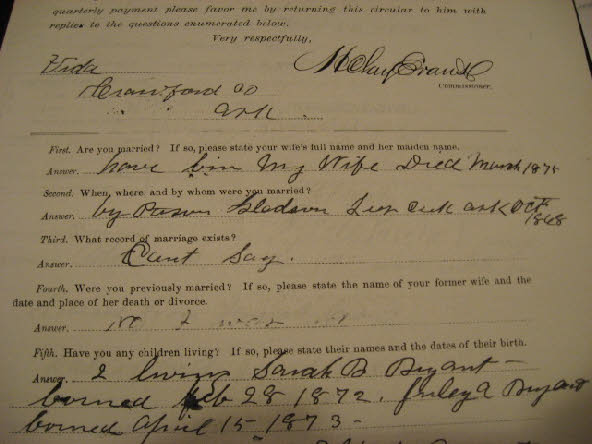 quarterly payment please favor me by returning this circular to him with
replies to the questions enumerated below.
Very respectfully,
H Clay Evans
Commissioner.
Crawford Co
Ark.
First. Are you married? If so, please state your wife's full name and her maiden name.
Answer. have bin My Wife Died March 1875
Second. When, where and by whom were you married?
Answer. by Ark Oct 1868
Third. What record of marriage exists?
Answer. Cant Say.
Fourth. Were you previously married? If so, please state the name of your former wife and the
date and place of her death or divorce.
Answer. No I was
Fifth. Have you any children living? If so, please state their names and the dates of their birth.
Answer. 2 living Sarah B Bryant -
borned feb 28 1872. A Bryant
borned April 15 - 1873 -